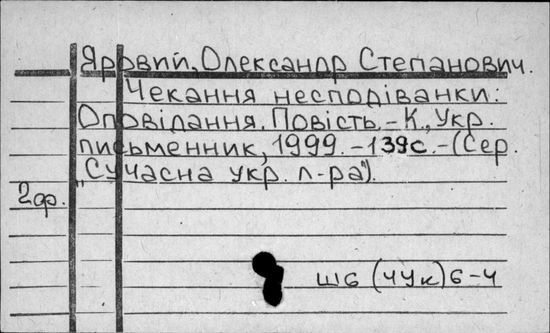 Яровий, Олександр Степанович.
Чекання несподіванки:
Оповідання. Повість. – К., Укр.
письменник, 1999. – 139с. – (Сер.
„Сучасна укр. л-ра").
2ф.
Ш6 (4Ук) 6-4